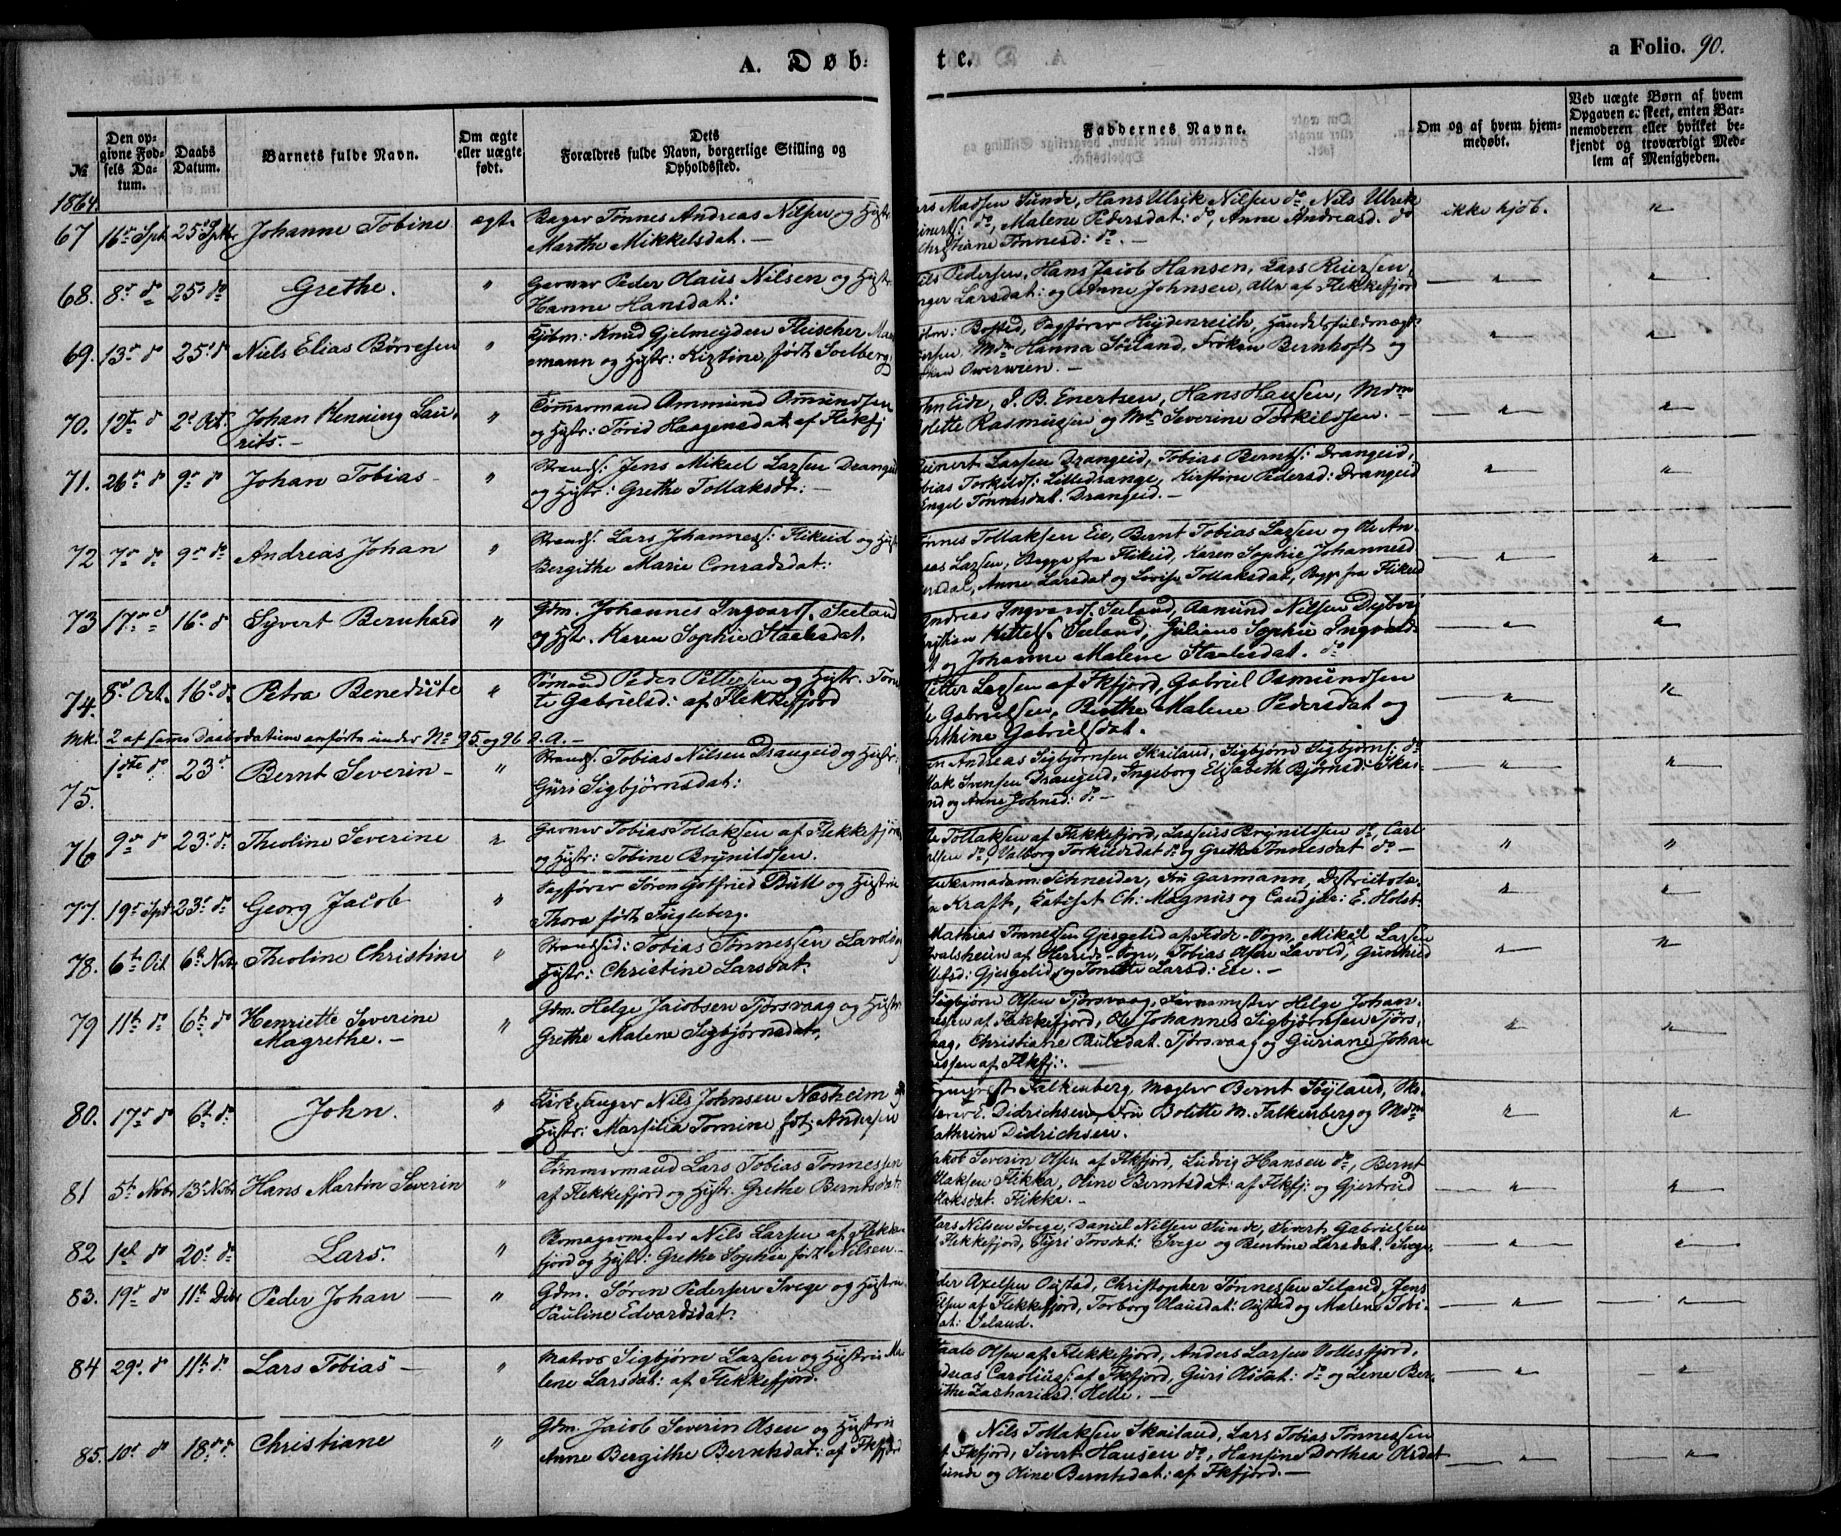 A. Døb-
te.
a Folio. 90.
№
Den op-
givne Fød-
sels Da-
tum.
Daabs
Datum.
Barnets fulde Navn.
Om ægte
eller uægte
født.
Dets
Forældres fulde Navn, borgerlige Stilling og
Opholdssted.
Faddernes Navne.
Om og af hvem hjem-
medøbt.
Ved uægte Børn af hvem
Opgaven er skeet, enten Bar-
nemoderen eller hvilket be-
kjendt og troværdigt Med-
lem af Menigheden.
1864.
67 16de Spt. 25de Sptbr Johanne Tobine ægt. Bager Tønnes Andreas Nilsen og Hustr
Marthe Mikkelsdat. —
Madsen Sunde, Hans Ulrik Nilsen do, Nils Ulrik
do, Malene Pedersdat: do, Anne Andreasd. do
Tønnesd: do. —
ikke hjdb. "
68. 8de do 25de do Grethe. " Garver Peder Olaus Nilsen og Hustr:
Hanne Hansdat:
Pedersen, Hans Jacob Hansen, Lars Reiersen,
Larsdat: og Anne Johnsen, alle af Flekkefjord
" "
69. 13de do 25de do Niels Elias Børresen " Kjøbm: Knud Gjelmeyden Fleischer
emann og Hustr: Kirstine, født Soelberg
Bosted, Sagfører Heydenreich, Handelsfuldmægt
Mdm Hanna Söiland, Frøken Bernhoft og
" "
70. 12te do 2de Oct. Johan Henning Lau-
rits. — " Tømermand Ammund Omundsen
og Hustr: Torid Haagensdat. af Flekfj
Eide, I. B. Enertsen, Hans Hansen, Mdm
Rasmussen og Md. Severine Torkildsen.
" "
71. 26de do 9de do Johan Tobias — " Strands: Jens Mikael Larsen Drangeid
og Hustr: Grethe Tollaksdt: —
Larsen Drangeid, Tobias Bernts: Drangeid,
Torkilds: Lilledrange, Kirstine Peders: Drangeid
Engel Tønnesdat. Drangeid. —
" "
72 7de do 9de do Andreas Johan " Strands. Lars Johanness: Flikeid og Hustr
Bergithe Marie Conradsdat:
Tollaksen Eie, Bernt Tobias Larsen og Ole An-
Larsen, Begge fra Flikeid, Karen Sophie Johannesd
Anne Larsdat og Lovise Tollaksdat, Begge fra Flikeid
" "
73 17de 16de do Syvert Bernhard " Gdm. Johannes Ingvards. Seeland
og Hustr. Karen Sophie Staalesdat.
Andreas Ingvards. Seeland, Aamund Nilsen Dybvig
Kittels. Seeland, Juliane Sophie Ingvalds
og Johanne Malene Staalesdat. do
" "
74. 8de Oct. 16de do Petra Benedicte " Peder Pettersen og Hustr. Tone
te Gabrielsd: af Flekkefjord
Petter Larsen af Fkfjord, Gabriel Osmundsen
Gabrielsen, Berthe Malene Pedersdat og
Gabrielsdat.
" "
Mk: 2 af sams Daabsdatum anførte under No 95 og 96 d. a. —
75. 1ste do 23de Bernt Severin — " Strands: Tobias Nilsen Drangeid og Hustr:
Guri Sigbjørnsdat:
Andreas Sigbjørnsen Skailand, Sigbjørn Sigbjørns: do
Svensen Drangeid, Ingeborg Elisabeth Bjørnsd: Skai-
og Anne Johnsd: do —
" "
76 9de do 23de do Theoline Severine " Garver Tobias Tollaksen af Flekkefjord
og Hustr: Tobine Brynildsen.
Tollaksen af Flekkefjord, Lassens Brynildsen do, Carl
do, Valborg Torkildsdat do og Grethe Tønnesdat do —
" "
77. 19de Spt. 23de do Georg Jacob " Sagfører Søren Gotfried Bull og Hustrue
Thora født Fugleberg.
Schneider, Fru Garmann, Districtslæ-
Kraft, Ch: Magnus og Cand jur: E. Holst
" "
78. 6te Oct 6te Nobr Theoline Christine " Strandsid: Tobias Tønnessen Lavold og
Hustr: Christine Larsdat:
Mathias Tønnessen Gjesgelid af Fedde Sogn, Mikal Larsen
af Herreds Sogn, Tobias Olsen Lavold, Gunhild
Gjesgelid og Tonette Larsd: Eie. —
" "
79 11te do 6te do Henriette Severine
Magrethe. — " Gdm. Helge Jacobsen Tjørsvaag og Hustr
Grethe Malene Sigbjørnsdat,
Sigbjørn Olsen Tjørsvaag, Farvemester Helge Johan-
nessen af Flekkefjord, Ole Johannes Sigbjørnsen Tjørs-
vaag, Christiane Paulsdat. Tjørsvaag og Guriane Johan
nessen af Flkfj:
" "
80. 17de do 6te do John. " Kirkesanger Nils Johnsen Næsheim og
Hustr: Marsilia Tomine, fød: Andersen
Falkenberg, Mægler Bernt Söyland,
Didrichsen, Fru Bolette M. Falkenberg og Mdm
Cathrine Didrichsen.
" "
81 5te Nobr 13de Nobr Hans Martin Severin " Tømmermand Lars Tobias Tønnessen
af Flekkefjord og Hustr. Grethe Berntsdat:
Jakob Severin Olsen af Fkfjord, Ludvig Hansen do, Bernt
Flikka, Oline Berntsdat: af Fkfj: og Gjertrud
Flikka. —
" "
82 1ste do 20de do Lars. " Bomagermester Nils Larsen af Flekke-
fjord og Hustr: Grethe Sophie født Nilsen.
Lars Nilsen Svege, Daniel Nilsen Sunde, Sivert Gabrielsen
Flekkefjord, Tyri Torsdat: Svege og Bentine Larsdat. Svege
" "
83. 19de do 11te Debr Peder Johan " Gdm. Søren Pedersen Svege og Hustrue
Pauline Edvardsdat:
Peder Axelsen Oustad, Christopher Tønnessen Seland, Jens
af Flekkefjord, Torborg Olausdat: Oustad og Malene Tobi-
Seland.
" "
84 29de do 11te do Lars Tobias — " Matros Sigbjørn Larsen og Hustrue Ma
lene Larsdat: af Flekkefjord.
Staale Olsen af Flekkefjord, Anders Larsen Vollesfjord,
Carolius: af Fkfjord, Guri Olsdat: do og Lene Ber-
githe Zachariasd: Helle. —
" "
85. 10de do 18de do Christiane " Gdm. Jacob Severin Olsen og Hustrue
Anne Bergithe Berntsdat: af Flkfjord
Nils Tollaksen Skailand, Lars Tobias Tønnessen
Fkfjord, Sivert Hansen do, Hansine Dorthea Olsdat
Sunde og Oline Berntsdat: af Fkfjord. —
" "